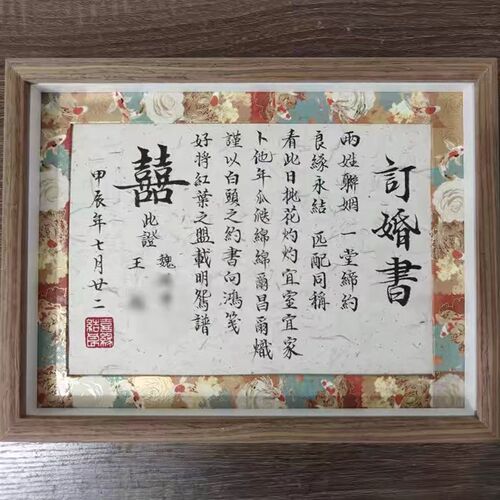 訂婚書
兩姓聯姻 一堂締約
良緣永結 匹配同稱
看此日桃花灼灼 宜室宜家
卜他年瓜瓞綿綿 爾昌爾熾
謹以白頭之約書向鴻箋
好將紅葉之盟載明鴛譜
此證
魏
王
囍
甲辰年七月廿二